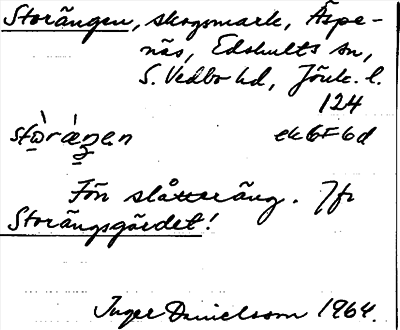 Storängen, skogsmark, Äspe-
näs, Edshults sn,
S. Vedbo hd, Jönk. l.
124
ek 6F 6d
Förr slåtteräng. Jfr
Storängsgärdet!
Inger Danielsson 1964.